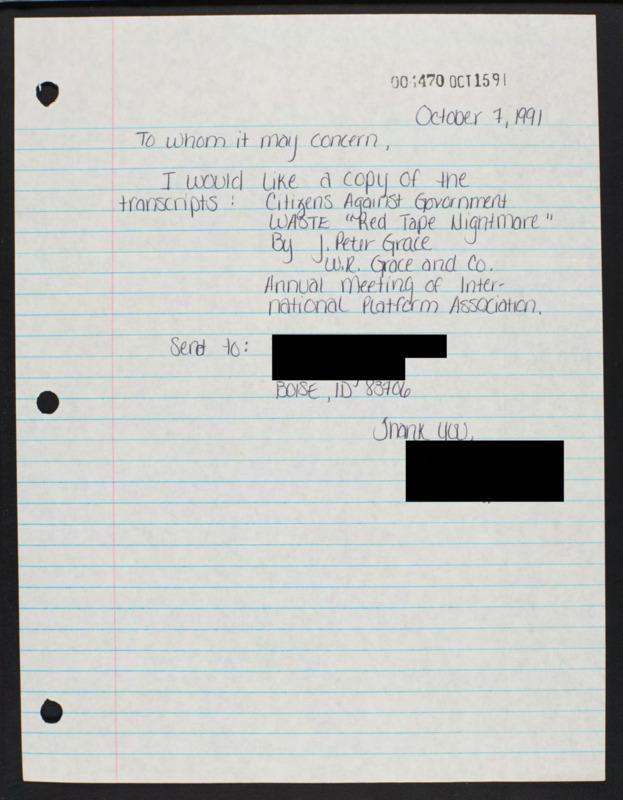 001470 OCT1591
October 7, 1991
To whom it may concern,
I would like a copy of the
transcripts: Citizens Against Government
WASTE "Red Tape Nightmare"
By J. Peter Grace
W.R. Grace and Co.
Annual Meeting of Inter-
national Platform Association.
Send to:
BOISE, ID 83706
Thank you,